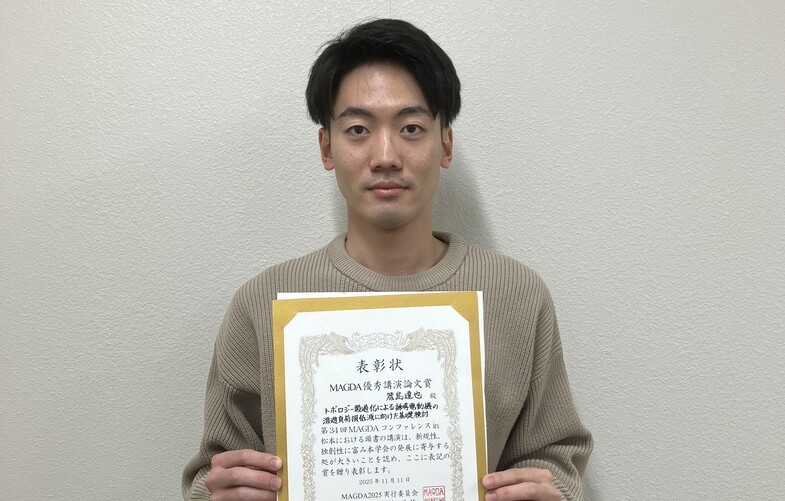 表彰状
MAGDA優秀講演論文賞
茂島達也 殿
トポロジー最適化による誘導電動機の
漂遊負荷損低減に向けた基礎検討
第34回MAGDAコンファレンスin
松本における頭書の講演は、新規性、
独創性に富み本学会の発展に寄与する
処が大きいことを認め、ここに表記の
賞を贈り表彰します。
2025年11月11日
MAGDA2025実行委員会
MAGDA